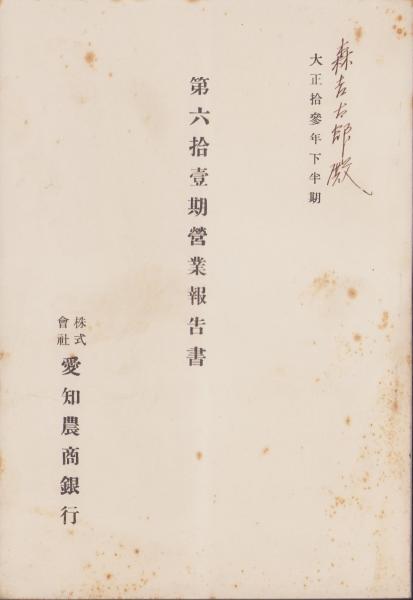 森吉太郎殿
大正拾參年下半期
第六拾壹期營業報告書
株式會社
愛知農商銀行